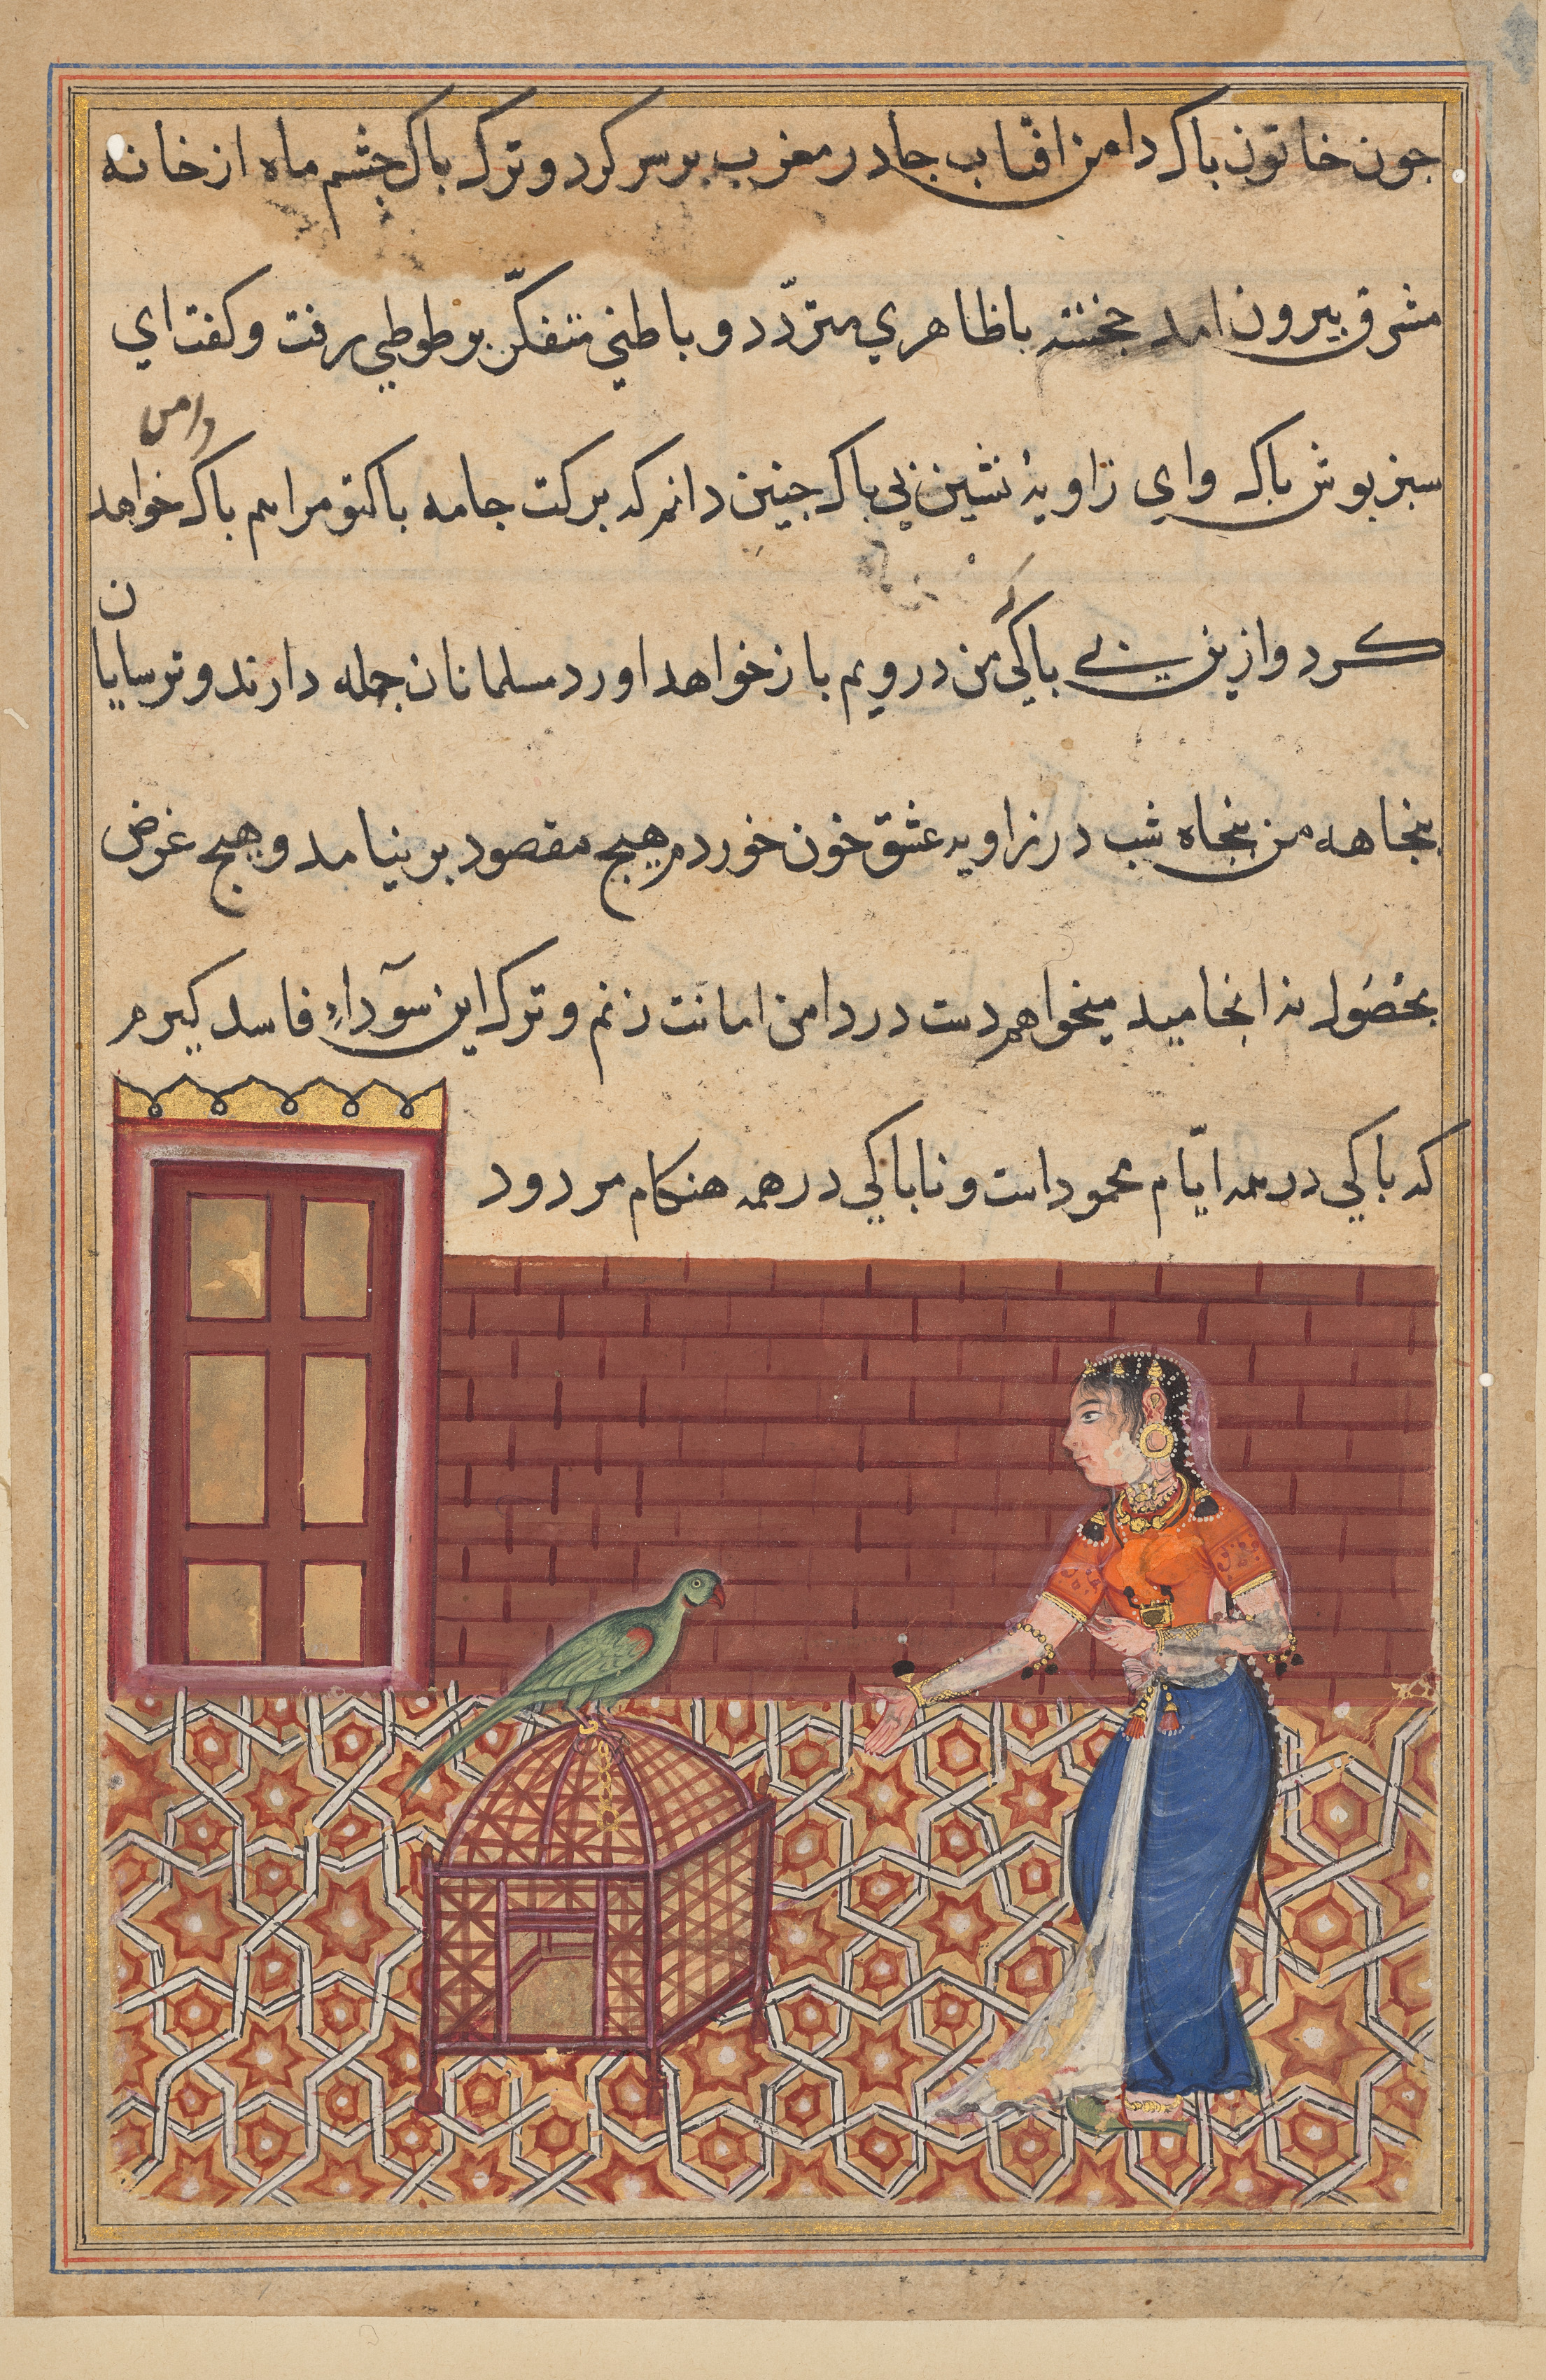 جون خاتون باک دامن افتاب جادر مغرب بر سر کرد و ترک باک جشم ماه از خانه
مشرق بیرون امد خجسته باظاهری متردّد و باطنی متفکّر بر طوطی رفت و کفت ای
دامن
سبزبوش باک وای زاویهٔ نشین بی باک جنین دانم که برکت جامه باک تو مرا هم باک خواهد
کرد و ازین بی باکی من در ویم باز خواهد اورد مسلمانان جله دارند و ترسایان
بنجاهه من بنجاه شب در زاویه عشق خون خوردم هیج مقصود بر نیامد و هیج غرض
بحُصُول نه انجامید میخواهم دست در دامن امانت زنم و ترک این سوداءِ فاسد کیرم
که باکی در همه ایّام محمود است و ناباکی در همه هنکام مردود